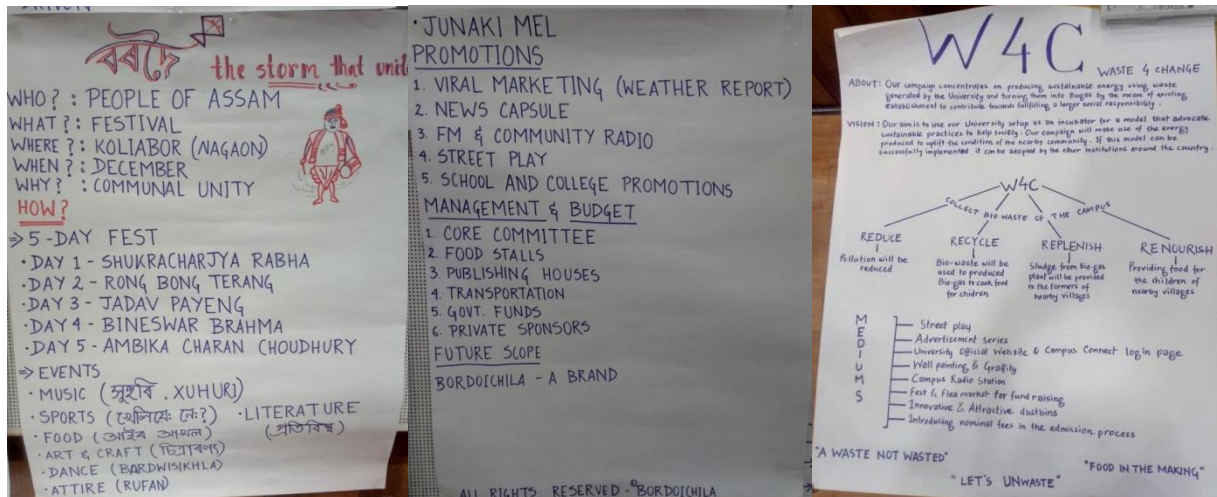 the storm that unit
WHO? : PEOPLE OF ASSAM
WHAT? : FESTIVAL
WHERE? : KOLIABOR (NAGAON)
WHEN? : DECEMBER
WHY? : COMMUNAL UNITY
HOW?
⇒ 5-DAY FEST
· DAY 1 - SHUKRACHARJYA RABHA
· DAY 2 - RONG BONG TERANG
· DAY 3 - JADAV PAYENG
· DAY 4 - BINESWAR BRAHMA
· DAY 5 - AMBIKA CHARAN CHOUDHURY
⇒ EVENTS
· MUSIC (সুহুৰি, XUHURI)
· SPORTS
· LITERATURE
(প্ৰতিবিম্ব)
· FOOD
· ART & CRAFT
· DANCE (BARDWISIKHLA)
· ATTIRE (RUFAN)
· JUNAKI MEL
PROMOTIONS
1. VIRAL MARKETING (WEATHER REPORT)
2. NEWS CAPSULE
3. FM & COMMUNITY RADIO
4. STREET PLAY
5. SCHOOL AND COLLEGE PROMOTIONS
MANAGEMENT & BUDGET
1. CORE COMMITTEE
2. FOOD STALLS
3. PUBLISHING HOUSES
4. TRANSPORTATION
5. GOVT. FUNDS
6. PRIVATE SPONSORS
FUTURE SCOPE
BORDOICHILA - A BRAND
ALL RIGHTS RESERVED - ©BORDOICHILA
W4C
WASTE 4 CHANGE
ABOUT: Our campaign concentrates on producing sustainable energy using waste
generated by the University and turning them into Biogas by the means of existing
establishment to contribute towards fulfilling a larger social responsibility.
VISION: Our aim is to use our University setup as an incubator for a model that advocate
sustainable practices to help society. Our campaign will make use of the energy
produced to uplift the condition of the nearby community. If this model can be
successfully implemented it can be adopted by the other institutions around the country.
W4C
COLLECT BIO WASTE OF THE CAMPUS
REDUCE
Pollution will be
reduced
RECYCLE
Bio-waste will be
used to produced
Bio-gas to cook food
for chidren
REPLENISH
Sludge from bio-gas
plant will be provided
to the farmers of
nearby villages
RENOURISH
Providing food for
the children of
nearby villages
MEDIUMS
Street play
Advertisement series
University Official Website & Campus Connect login page
Wall painting & Graffity
Campus Radio Station
Fest & Flea market for fund raising
Innovative & Attractive dustbins
Introducing nominal fees in the admission process
"A WASTE NOT WASTED"
"LET'S UNWASTE"
"FOOD IN THE MAKING"